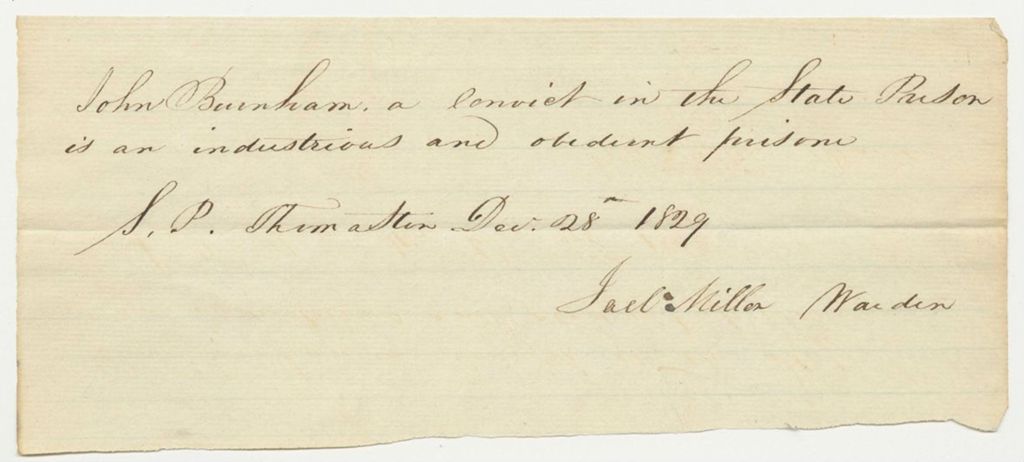 John Burnham. a Convict in the State Prison
is an industrious and obedient prisone
S. P. Thomaston Dec. 28th 1829
Joel Miller Warden